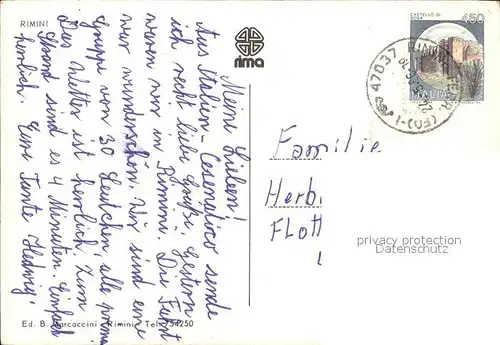 RIMINI
rima
Meine Lieben!
Aus Italien - Cesenatico sende
ich recht liebe Grüße. Gestern
waren wir in Rimini. Die Fahrt
war wunderschön. Wir sind eine
Gruppe von 30 Leutchen, alle prima.
Das Wetter ist herrlich. Zum
Strand sind es 4 Minuten. Einfach
herrlich. Eure Tante Hedwig
Ed. B. Barcaccini - Rimini - Tel. 754250
CASTELLO DI
450
ITALIA
47037 RIMINI
(FO)
Familie
Herb
Flott
privacy protection
Datenschutz